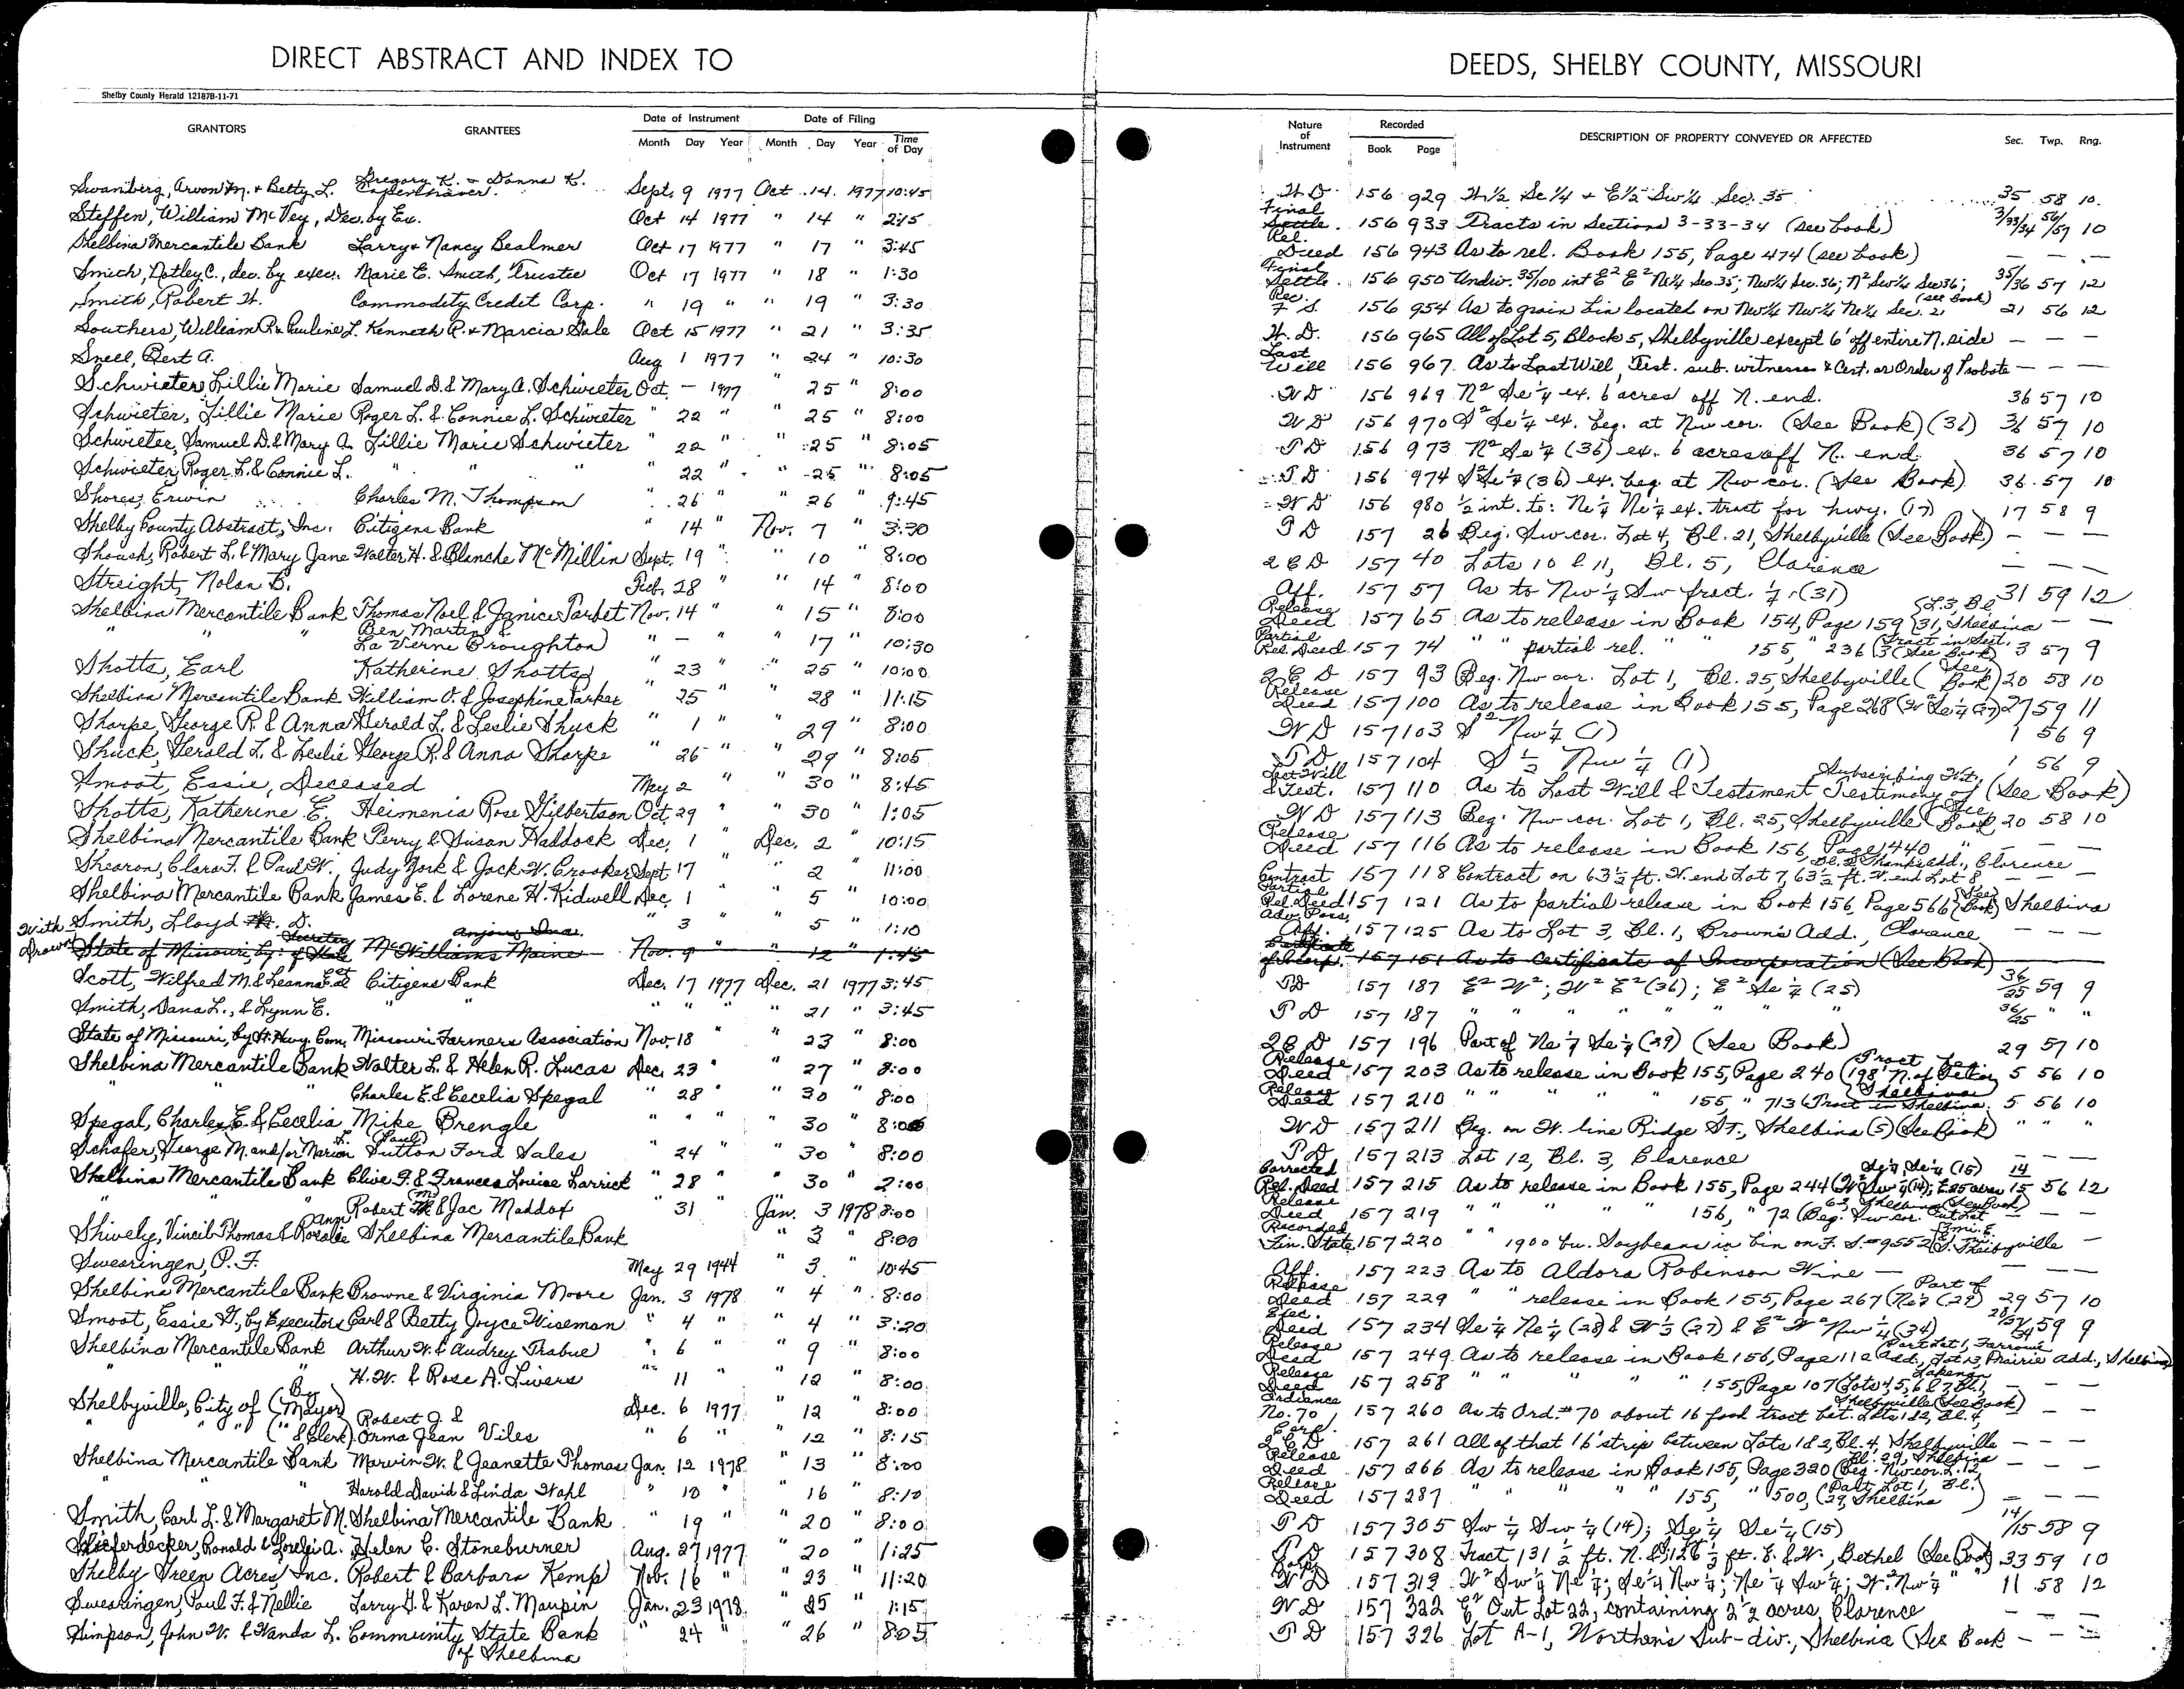 DIRECT ABSTRACT AND INDEX TO
DEEDS, SHELBY COUNTY, MISSOURI
Shelby County Herald 12187B-11-71
GRANTORS GRANTEES Date of Instrument Month Day Year Date of Filing Month Day Year Time of Day Nature of Instrument Recorded Book Page DESCRIPTION OF PROPERTY CONVEYED OR AFFECTED Sec. Twp. Rng.
Swanberg, Arvon M. & Betty L. Gregory K. & Donna K. Copenhaver Sept. 9 1977 Oct. 14 1977 10:45 W D 156 929 W 1/2 Se 1/4 & E 1/2 Sw 1/4 Sec. 35 35 58 10
Steffen, William McVey, Dec. by Ex. Oct 14 1977 " 14 " 2:15 Final Settle. 156 933 Tracts in Sections 3-33-34 (see book) 3/33/34 56/57 10
Shelbina Mercantile Bank Larry & Nancy Bealmer Oct 17 1977 " 17 " 3:45 Rel. Deed 156 943 As to rel. Book 155, Page 474 (see book) — — —
Smith, Notley C., dec. by exec. Marie E. Smith, Trustee Oct 17 1977 " 18 " 1:30 Final Settle. 156 950 Undiv. 35/100 int E² E² Ne1/4 Sec. 35; Nw1/4 Sec. 36; N² Sw1/4 Sec 36; (see book) 35/36 57 12
Smith, Robert H. Commodity Credit Corp. " 19 " " 19 " 3:30 Rec. F S. 156 954 As to grain bin located on Nw1/4 Nw1/4 Ne1/4 Sec. 21 21 56 12
Southers, William R. & Pauline L. Kenneth R. & Marcia Gale Oct 15 1977 " 21 " 3:35 W. D. 156 965 All of Lot 5, Block 5, Shelbyville except 6' off entire N. side — — —
Snell, Bert A. Aug 1 1977 " 24 " 10:30 Last Will 156 967 As to Last Will, Test. sub. witnesses & Cert. or Order of Probate — — —
Schwieter, Lillie Marie Samuel D. & Mary A. Schwieter Oct. — 1977 " 25 " 8:00 W D 156 969 N² Se 1/4 ex. 6 acres off N. end. 36 57 10
Schwieter, Lillie Marie Roger L. & Connie L. Schwieter " 22 " " 25 " 8:00 W D 156 970 S² Se 1/4 ex. beg. at Nw cor. (See Book) (36) 36 57 10
Schwieter, Samuel D. & Mary A. Lillie Marie Schwieter " 22 " " 25 " 8:05 T D 156 973 N² Se 1/4 (36) ex. 6 acres off N. end 36 57 10
Schwieter, Roger L. & Connie L. " " " " 22 " " 25 " 8:05 T D 156 974 S² Se 1/4 (36) ex. beg. at Nw cor. (See Book) 36 57 10
Shores, Erwin Charles M. Thompson " 26 " " 26 " 9:45 W D 156 980 1/2 int. to: Ne 1/4 Ne 1/4 ex. tract for hwy. (17) 17 58 9
Shelby County Abstract, Inc. Citizens Bank " 14 " Nov. 7 " 3:30 T D 157 26 Beg. Sw cor. Lot 4, Bl. 21, Shelbyville (See Book) — — —
Shouch, Robert L. & Mary Jane Walter H. & Blanche McMillin Sept. 19 " " 10 " 8:00 2 C D 157 40 Lots 10 & 11, Bl. 5, Clarence — — —
Streight, Nolan B. Feb. 28 " " 14 " 8:00 Aff. 157 57 As to Nw 1/4 Sw fract. 1/4 (31) 31 59 12
Shelbina Mercantile Bank Thomas Noel & Janice Tarbet Nov. 14 " " 15 " 8:00 Release Deed 157 65 As to release in Book 154, Page 159 (L.3, Bl. 31, Shelbina — —
" " " Ben Martin & La Verne Broughton " — " " 17 " 10:30 Partial Rel. Deed 157 74 " " partial rel. " " 155, " 236 (Tract in Sect. 3 (See Book) 3 57 9
Shotts, Earl Katherine Shotts " 23 " " 25 " 10:00 2 C D 157 93 Beg. Nw cor. Lot 1, Bl. 25, Shelbyville (See Book) 20 58 10
Shelbina Mercantile Bank William O. & Josephine Parker " 25 " " 28 " 11:15 Release Deed 157 100 As to release in Book 155, Page 268 (W² Se 1/4 (27) 27 59 11
Sharpe, George R. & Anna Gerald L. & Leslie Shuck " 1 " " 29 " 8:00 W D 157 103 S² Nw 1/4 (1) 1 56 9
Shuck, Gerald L. & Leslie George R. & Anna Sharpe " 26 " " 29 " 8:05 T D 157 104 S 1/2 Nw 1/4 (1) 1 56 9
Smoot, Essie, Deceased May 2 " " 30 " 8:45 Last Will & Test. 157 110 As to Last Will & Testament Testimony of Subscribing Wit. (See Book)
Shotts, Katherine E. Heimenis Rose Gilbertson Oct. 29 " " 30 " 1:05 W D 157 113 Beg. Nw cor. Lot 1, Bl. 25, Shelbyville (See Book) 20 58 10
Shelbina Mercantile Bank Perry & Susan Haddock Dec. 1 " Dec. 2 " 10:15 Release Deed 157 116 As to release in Book 156, Page 440 — — —
Shearon, Clara F. & Paul W. Judy York & Jack W. Crooker Sept. 17 " " 2 " 11:00 Contract 157 118 Contract on 63 1/2 ft. W. end Lot 7, 63 1/2 ft. W. end Lot 8 Bl. 2 Shanks add., Clarence — — —
Shelbina Mercantile Bank James E. & Lorene H. Kidwell Dec. 1 " " 5 " 10:00 Partial Rel. Deed 157 121 As to partial release in Book 156, Page 566 (See Book) Shelbina
Smith, Lloyd D. " 3 " " 5 " 1:10 Adv. Poss. Aff. 157 125 As to Lot 3, Bl. 1, Brown's Add., Clarence — — —
With Drawn State of Missouri, by: Secretary of State McWilliams Maine Nov. 9 " " 12 " 1:45 Certificate of Incorp. 157 151 As to Certificate of Incorporation (See Book)
Scott, Wilfred M. & Leanna Et al Citizens Bank Dec. 17 1977 Dec. 21 1977 3:45 T D 157 187 E² W²; W² E² (36); E² Se 1/4 (25) 36/25 59 9
Smith, Dana L., & Lynn E. " " " " " 21 " 3:45 T D 157 187 " " " " " " " 36/25 " "
State of Missouri, by St. Hwy. Com. Missouri Farmers Association Nov. 18 " " 23 " 8:00 2 C D 157 196 Part of Ne 1/4 Se 1/4 (29) (See Book) 29 57 10
Shelbina Mercantile Bank Walter L. & Helen R. Lucas Dec. 23 " " 27 " 8:00 Release Deed 157 203 As to release in Book 155, Page 240 (Tract 198' N. of 5 56 10
" " " Charles E. & Cecelia Spegal " 28 " " 30 " 8:00 Release Deed 157 210 " " " " " 155, " 713 (Tract in Shelbina 5 56 10
Spegal, Charles E. & Cecelia Mike Brengle " " " " 30 " 8:00 W D 157 211 Beg. on W. line Ridge St., Shelbina (5) (See Book) " " "
Schafer, George M. and/or Marion L. (Paul) Sutton Ford Sales " 24 " " 30 " 8:00 T D 157 213 Lot 12, Bl. 3, Clarence — — —
Shelbina Mercantile Bank Clive F. & Frances Louise Larrick " 28 " " 30 " 2:00 Corrected Rel. Deed 157 215 As to release in Book 155, Page 244 (W² Sw 1/4 (14); E 25 acres Se 1/4, Se 1/4 (15) 14 15 56 12
" " " Robert M. & Jac Maddox " 31 Jan. 3 1978 8:00 Release Deed 157 219 " " " " " 156, " 72 (Beg. Sw cor. Out Lot 63, Shelbina (See Book) — — —
Shively, Vincil Thomas & Rosalie Ann Shelbina Mercantile Bank " 3 " 8:00 Recorded Fin. State 157 220 " " 1900 bu. Soybeans in bin on F. S. #9552 (3 mi. E. S. Shelbyville —
Swearingen, P. F. May 29 1944 " 3 " 10:45 Aff. 157 223 As to Aldora Robinson Wine — — —
Shelbina Mercantile Bank Browne & Virginia Moore Jan. 3 1978 " 4 " 8:00 Release Deed 157 229 " " release in Book 155, Page 267 (Part of Ne 1/4 (29) 29 57 10
Smoot, Essie G., by Executors Carl & Betty Joyce Wiseman " 4 " " 4 " 3:20 Exec. Deed 157 234 Se 1/4 Ne 1/4 (28) & W 1/3 (27) & E² W² Nw 1/4 (34) 28/27/34 59 9
Shelbina Mercantile Bank Arthur W. & Audrey Trabue " 6 " " 9 " 8:00 Release Deed 157 249 As to release in Book 156, Page 11 (Part Lot 1, Farrowie add., Lot 13, Prairie add., Shelbina)
" " " H. W. & Rose A. Livers " 11 " " 12 " 8:00 Release Deed 157 258 " " " " " 155, Page 107 (Lots 4, 5, 6 & 7, Bl. 1, Lakenan — — —
Shelbyville, City of (By Mayor) Dec. 6 1977 " 12 " 8:00 Ordinance No. 70 157 260 As to Ord. #70 about 16 foot tract bet. Lots 1 & 2, Bl. 4, Shelbyville (See Book) — —
" " " (" & Clerk) Robert J. & Orma Jean Viles " 6 " " 12 " 8:15 Corp. 2 C D 157 261 All of that 16' strip between Lots 1 & 2, Bl. 4, Shelbyville — — —
Shelbina Mercantile Bank Marvin W. & Jeanette Thomas Jan. 12 1978 " 13 " 8:00 Release Deed 157 266 As to release in Book 155, Page 320 (Beg. Nw cor. L. 12, Bl. 29, Shelbina — — —
" " " Harold David & Linda Wahl " 10 " " 16 " 8:10 Release Deed 157 287 " " " " " 155, " 500, (Part Lot 1, Bl. 29, Shelbina) — — —
Smith, Carl L. & Margaret M. Shelbina Mercantile Bank " 19 " " 20 " 8:00 T D 157 305 Sw 1/4 Sw 1/4 (14); Se 1/4 Se 1/4 (15) 14/15 58 9
Schieferdecker, Ronald & Lorelei A. Helen E. Stoneburner Aug. 27 1977 " 20 " 1:25 T. D. 157 308 Tract 131 1/2 ft. N. & S; 126 1/2 ft. E. & W., Bethel (See Book) 33 59 10
Shelby Green Acres, Inc. Robert & Barbara Kemp Nov. 16 " " 23 " 11:20 Corp. W D 157 312 W² Sw 1/4 Ne 1/4; Se 1/4 Nw 1/4; Ne 1/4 Sw 1/4; W² Nw 1/4 " " 11 58 12
Swearingen, Paul F. & Nellie Larry G. & Karen L. Maupin Jan. 23 1978 " 25 " 1:15 W D 157 322 E² Out Lot 22, containing 2 1/2 acres, Clarence — — —
Simpson, John W. & Wanda L. Community State Bank of Shelbina " 24 " " 26 " 8:05 T D 157 326 Lot A-1, Worthen's Sub-div., Shelbina (See Book — — —